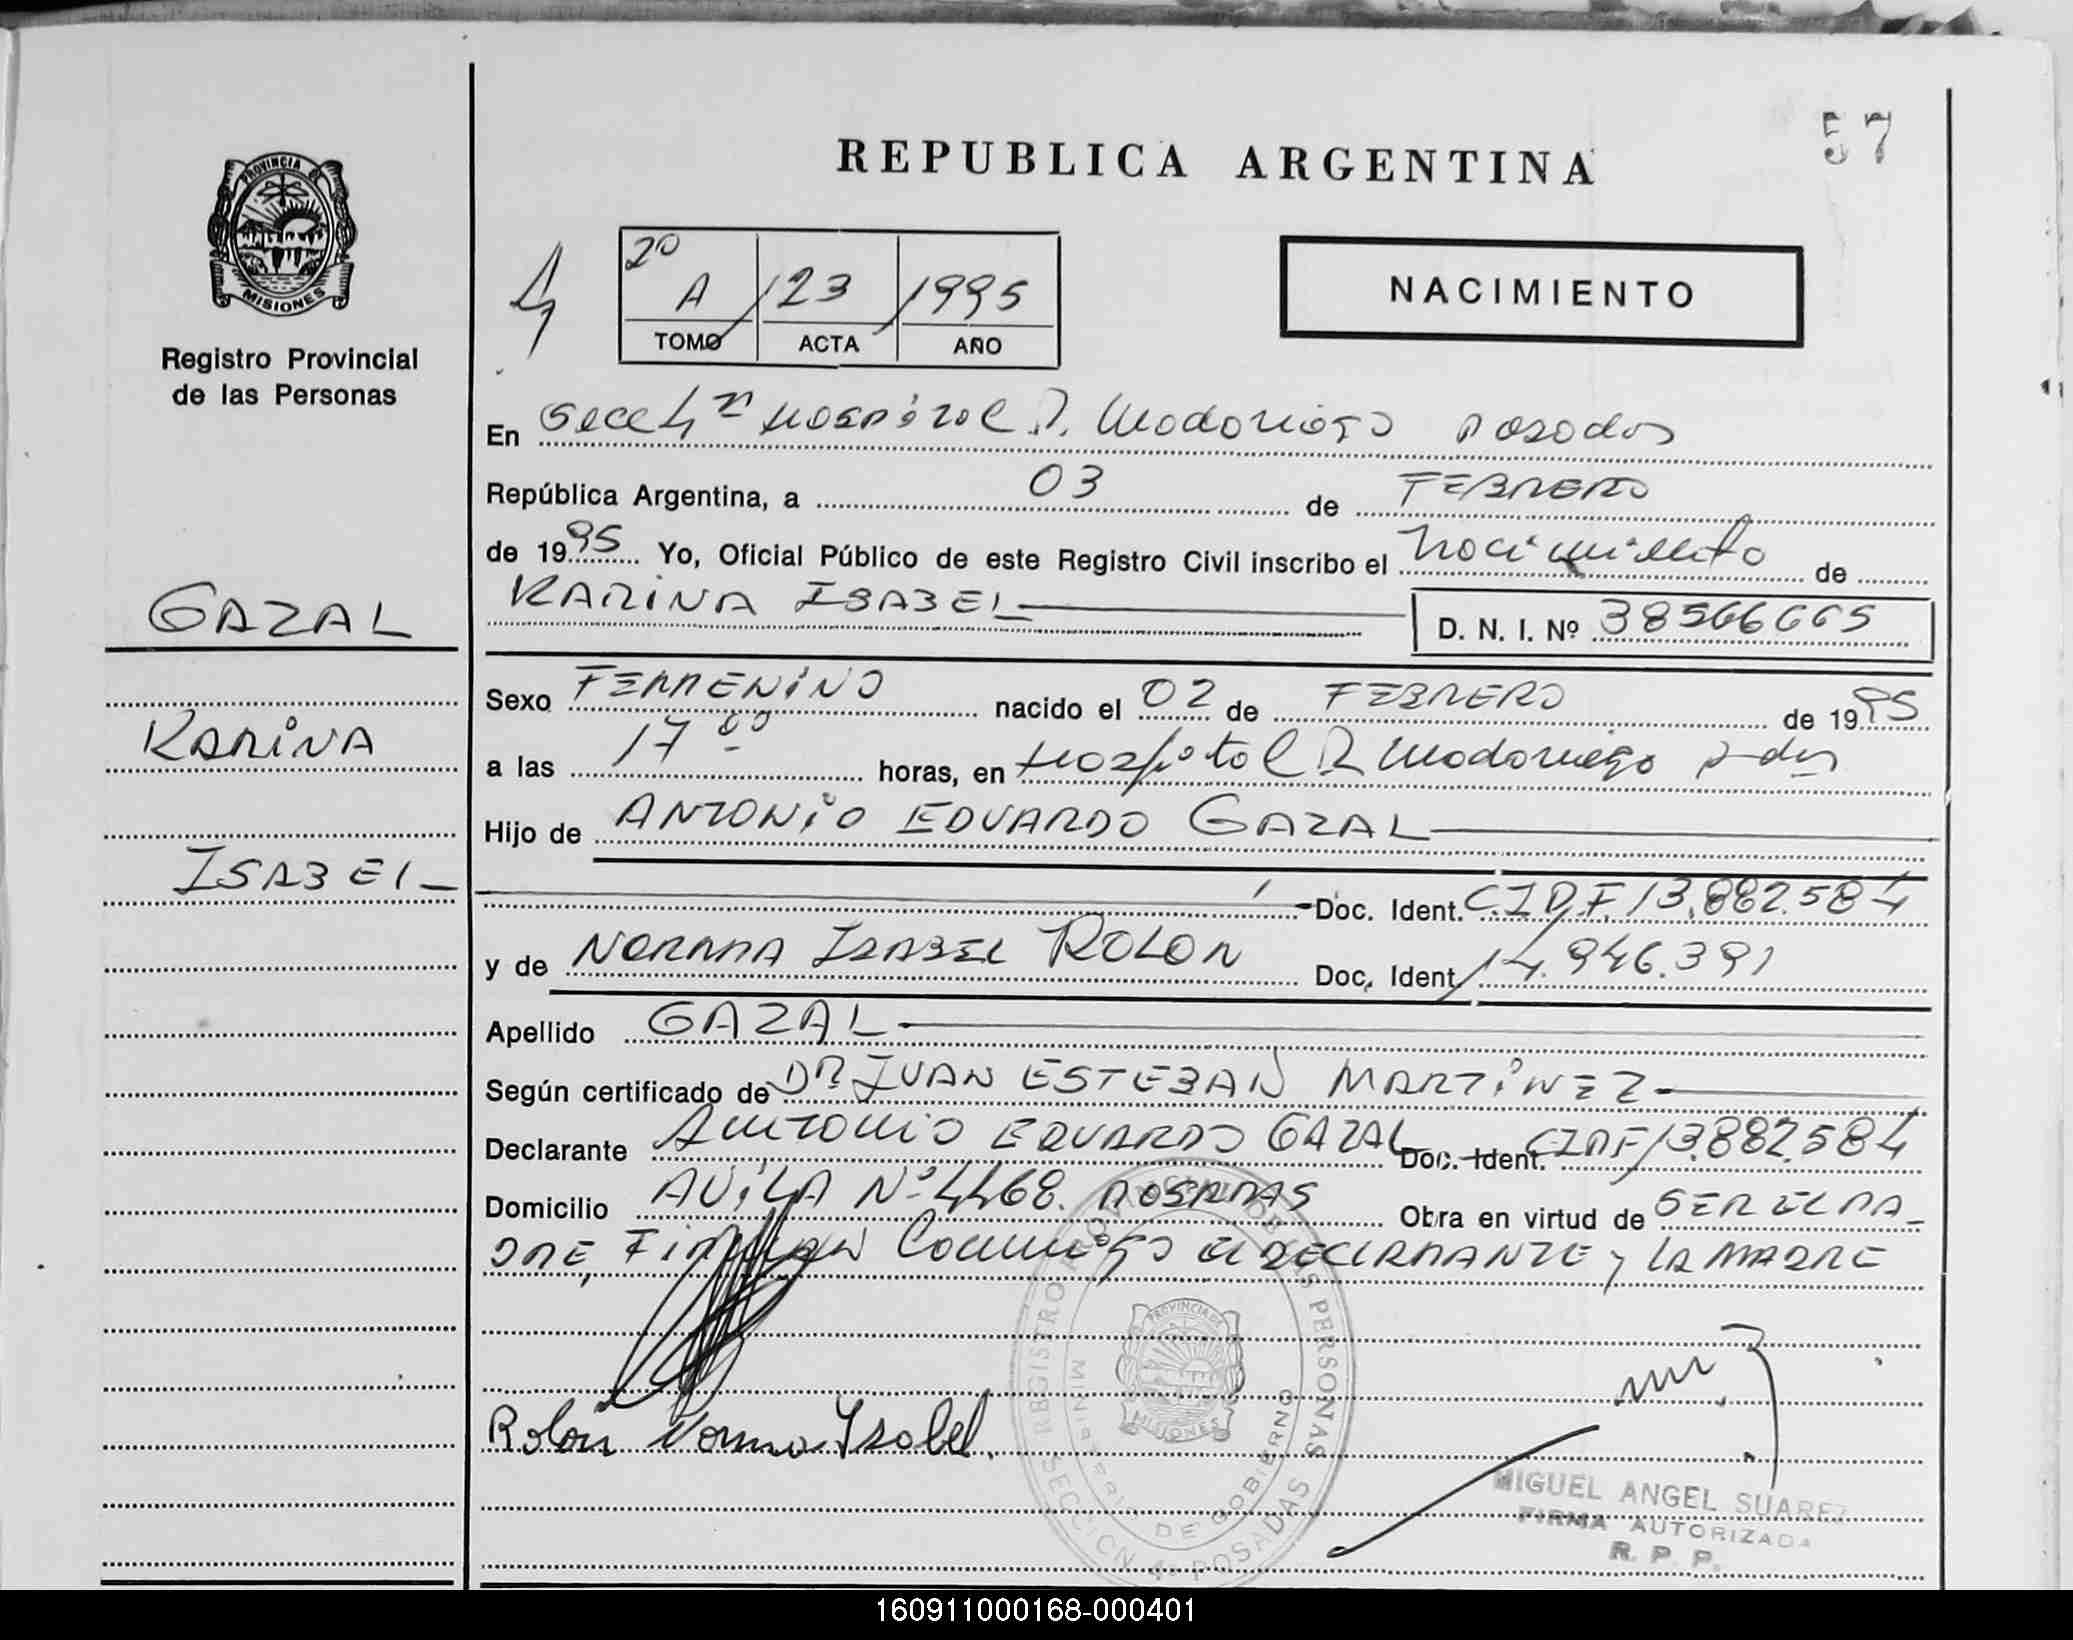 57
REPUBLICA ARGENTINA
PROVINCIA DE
MISIONES
Registro Provincial
de las Personas
4
2º
A / 123 / 1995
TOMO ACTA AÑO
NACIMIENTO
En Secc 4ª Hospital R. Madariaga Posadas
República Argentina, a 03 de FEBRERO
de 1995 Yo, Oficial Público de este Registro Civil inscribo el Nacimiento de
KARINA ISABEL D. N. I. Nº 38566665
GAZAL
KARINA
ISABEL
Sexo FEMENINO nacido el 02 de FEBRERO de 1995
a las 17 00 horas, en Hospital R Madariaga P-das
Hijo de ANTONIO EDUARDO GAZAL
Doc. Ident. C.I.D.F. 13.882.584
y de NORMA ISABEL ROLON Doc. Ident 14.946.391
Apellido GAZAL
Según certificado de DR JUAN ESTEBAN MARTINEZ
Declarante ANTONIO EDUARDO GAZAL Doc. Ident. CIDF 13.882.584
Domicilio AVILA Nº 4468. POSADAS Obra en virtud de SER EL PA_
DRE, Firman Conmigo el DECLARANTE y LA MADRE
Rolón Norma Ysabel.
REGISTRO PROVINCIAL DE LAS PERSONAS
MINISTERIO DE GOBIERNO
PROVINCIA DE
MISIONES
SECCION 4ª POSADAS
MIGUEL ANGEL SUAREZ
FIRMA AUTORIZADA
R. P. P.
160911000168-000401